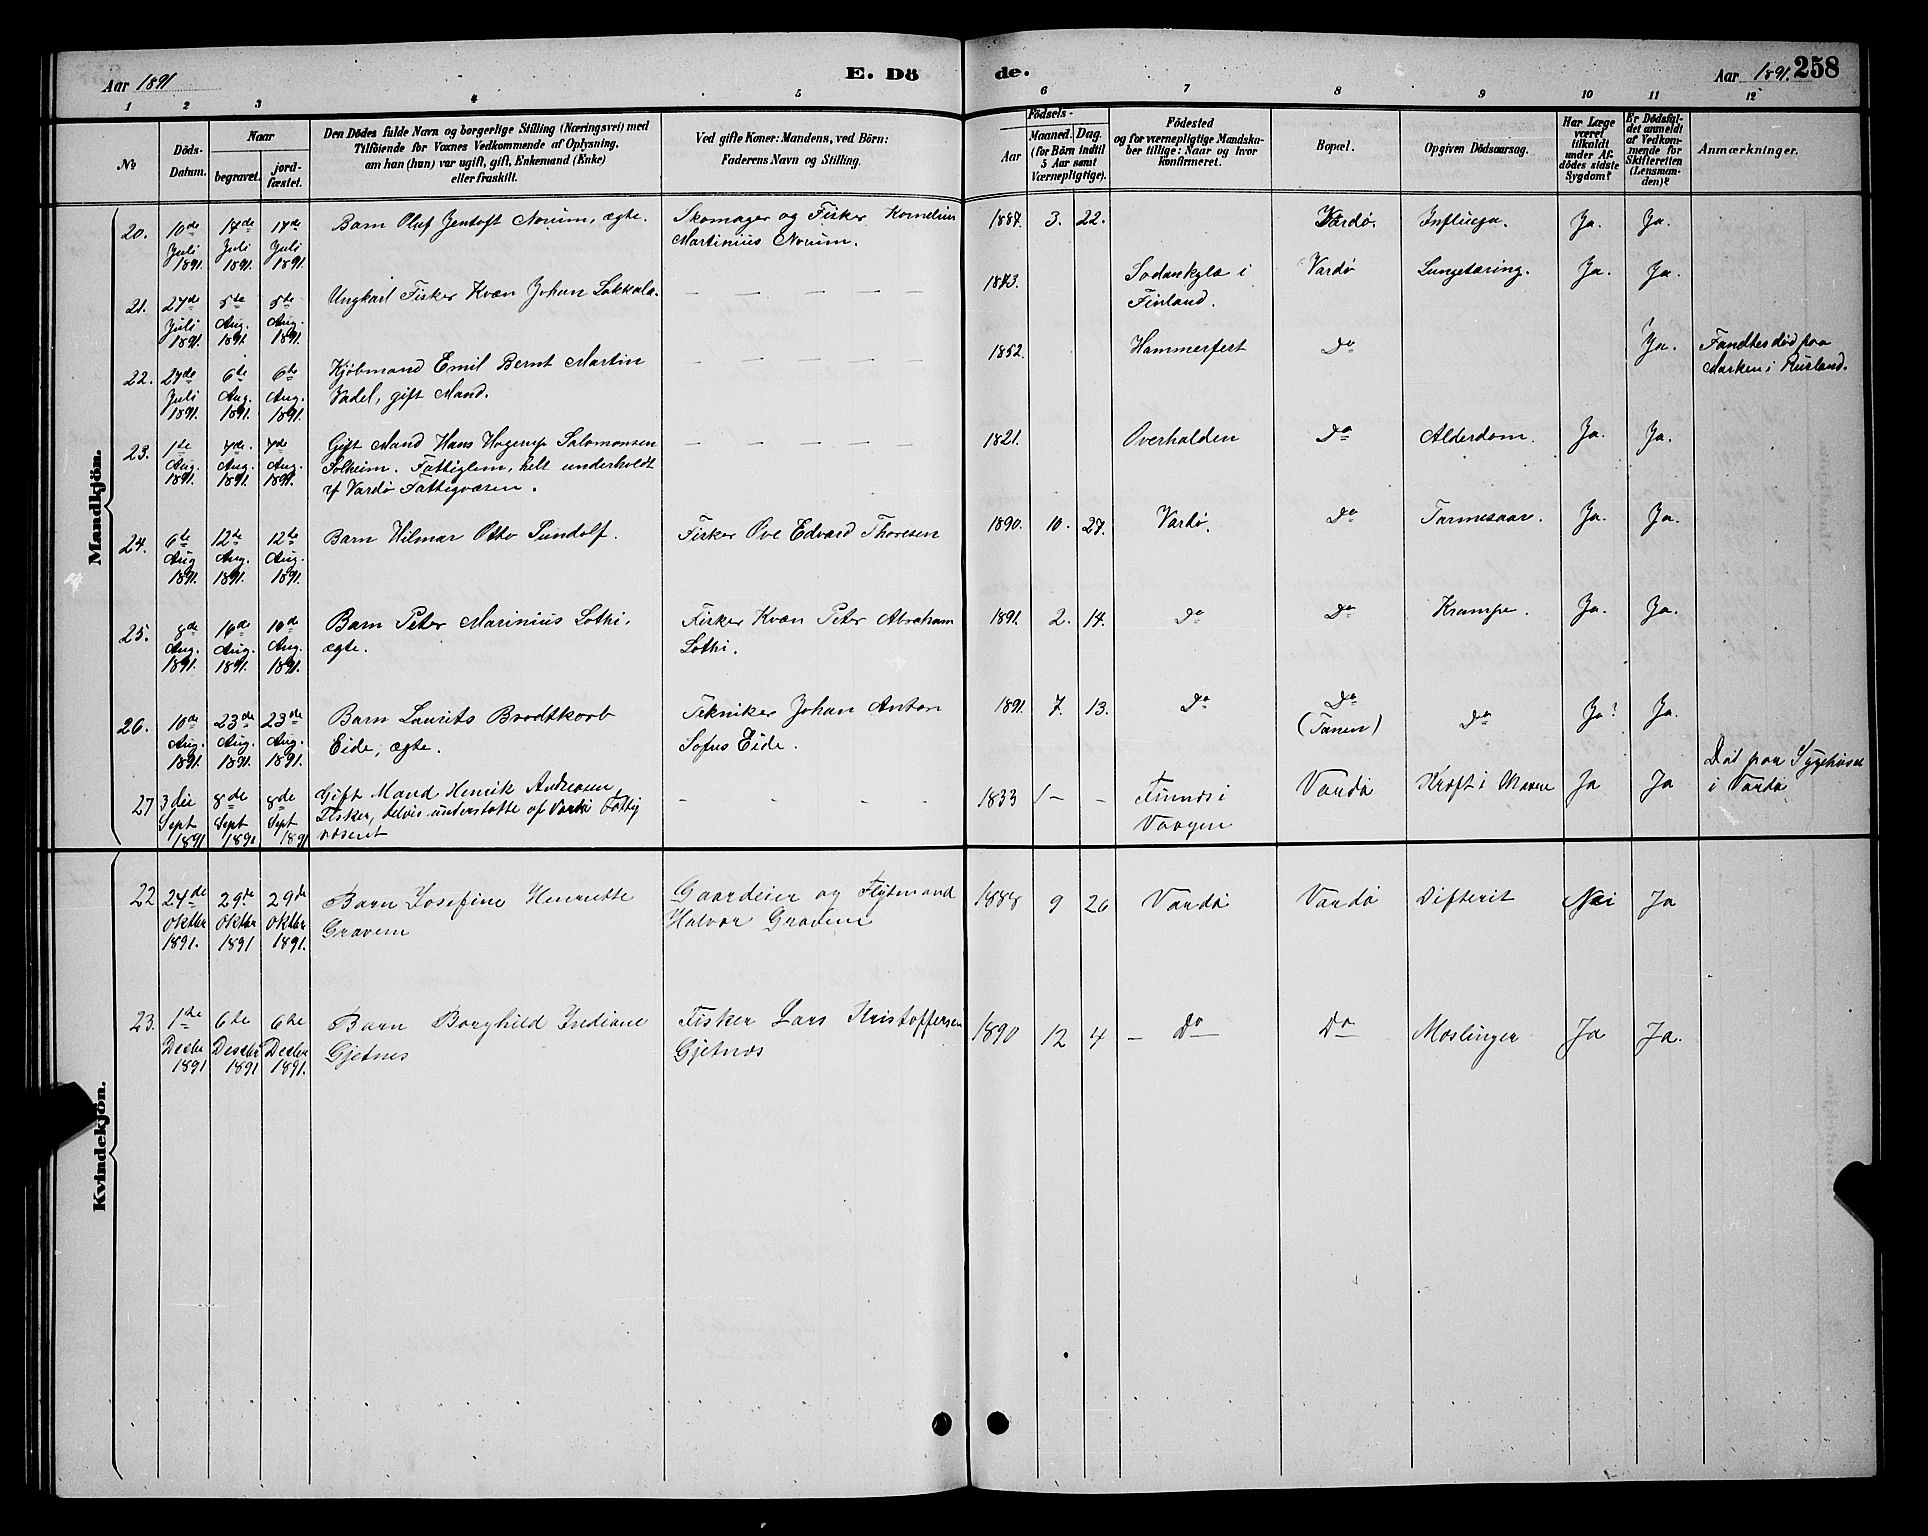 Aar 1891
E. Dö
de.
Aar 1891.
258
1 2 3 4 5 6 7 8 9 10 11 12
No
Döds-
Datum.
Naar
begravet.
jord-
fæstet.
Den Dödes fulde Navn og borgerlige Stilling (Næringsvei) med
Tilföiende for Voxnes Vedkommende af Oplysning,
om han (hun) var ugift, gift, Enkemand (Enke)
eller fraskilt.
Ved gifte Koner: Mandens, ved Börn:
Faderens Navn og Stilling.
Födsels-
Aar
Maaned. Dag.
(for Börn indtil
5 Aar samt
Værnepligtige).
Födested
og for værnepligtige Mandska-
ber tillige: Naar og hvor
konfirmeret.
Bopæl.
Opgiven Dödsaarsag.
Har Læge
været
tilkaldt
under Af-
dödes sidste
Sygdom?
Er Dödsfal-
det anmeldt
af Vedkom-
mende for
Skifteretten
(Lensman-
den)?
Anmærkninger.
Mandkjön.
20. 10de 17de 17de Barn Oluf Jentoft Norum, ægte. Skomager og Fisker Kornelius 1887. 3. 22. Vardø. Influenza. Ja. Ja.
Juli Juli Juli Martinius Norum.
1891. 1891. 1891.
21. 27de 5te 5te Ungkarl Fisker Kvæn Johan Lokkala. — — — — — 1873. Sodankylä i Vardø Lungetæring. Ja. Ja.
Juli Aug. Aug. Finland.
1891. 1891 1891.
22. 27de 6te 6te Kjøbmand Emil Bernt Martin — — — — — 1852. Hammerfest Do Ja. Fandtes død paa
Juli Aug. Aug. Vadel, gift Mand. Marken i Rusland.
1891. 1891. 1891.
23. 1te 7de 7de Gift Mand Hans Hagerup Salomonsen — — — — — 1821. Overhalden Do Alderdom. Ja. Ja.
Aug. Aug. Aug. Solheim. Fattiglem, helt underholdt
1891. 1891. 1891. af Vardø Fattigvæsen.
24. 6te 12te 12te Barn Hilmar Otto Sundolf. Fisker Ove Edvard Thoresen 1890. 10. 27. Vardø. Do Tarmesaar. Ja. Ja.
Aug Aug. Aug.
1891. 1891. 1891.
25. 8de 16de 16de Barn Peter Marinius Lothi, Fisker Kvæn Peter Abraham 1891. 2. 14. Do Do Krampe. Ja. Ja.
Aug. Aug. Aug. ægte. Lothi.
1891. 1891. 1891.
26. 10de 23de 23de Barn Laurits Brodtkorb Tekniker Johan Anton 1891. 7. 13. Do Do Do Ja? Ja.
Aug. Aug. Aug. Eide, ægte. Sofus Eide. (Tanen)
1891. 1891. 1891.
27 3die 8de 8de Gift Mand Henrik Andreasen, - - - - 1833 — - Finnes i Vardø Kræft i Maven Ja Ja Død paa Sygehuset
Sept Sept Sept Fisker, delvis understøtte af Vardø Fattig Vaagen i Vardø
1891 1891 1891 væsenet
Kvindekjön.
22 24de 29de 29de Barn Josefine Henriette Gaardeier og Flytmand 1888 9 26 Vardø Vardø Difterit Nei Ja
Oktbr Oktbr Oktbr Gravem Halvor Gravem
1891. 1891 1891.
23. 1ste 6te 6te Barn Borghild Indiane Fisker Lars Kristoffersen 1890 12 4 — Do Do Meslinger Ja Ja.
Desbr Desbr Desbr Gjetnes Gjetnes
1891 1891 1891.